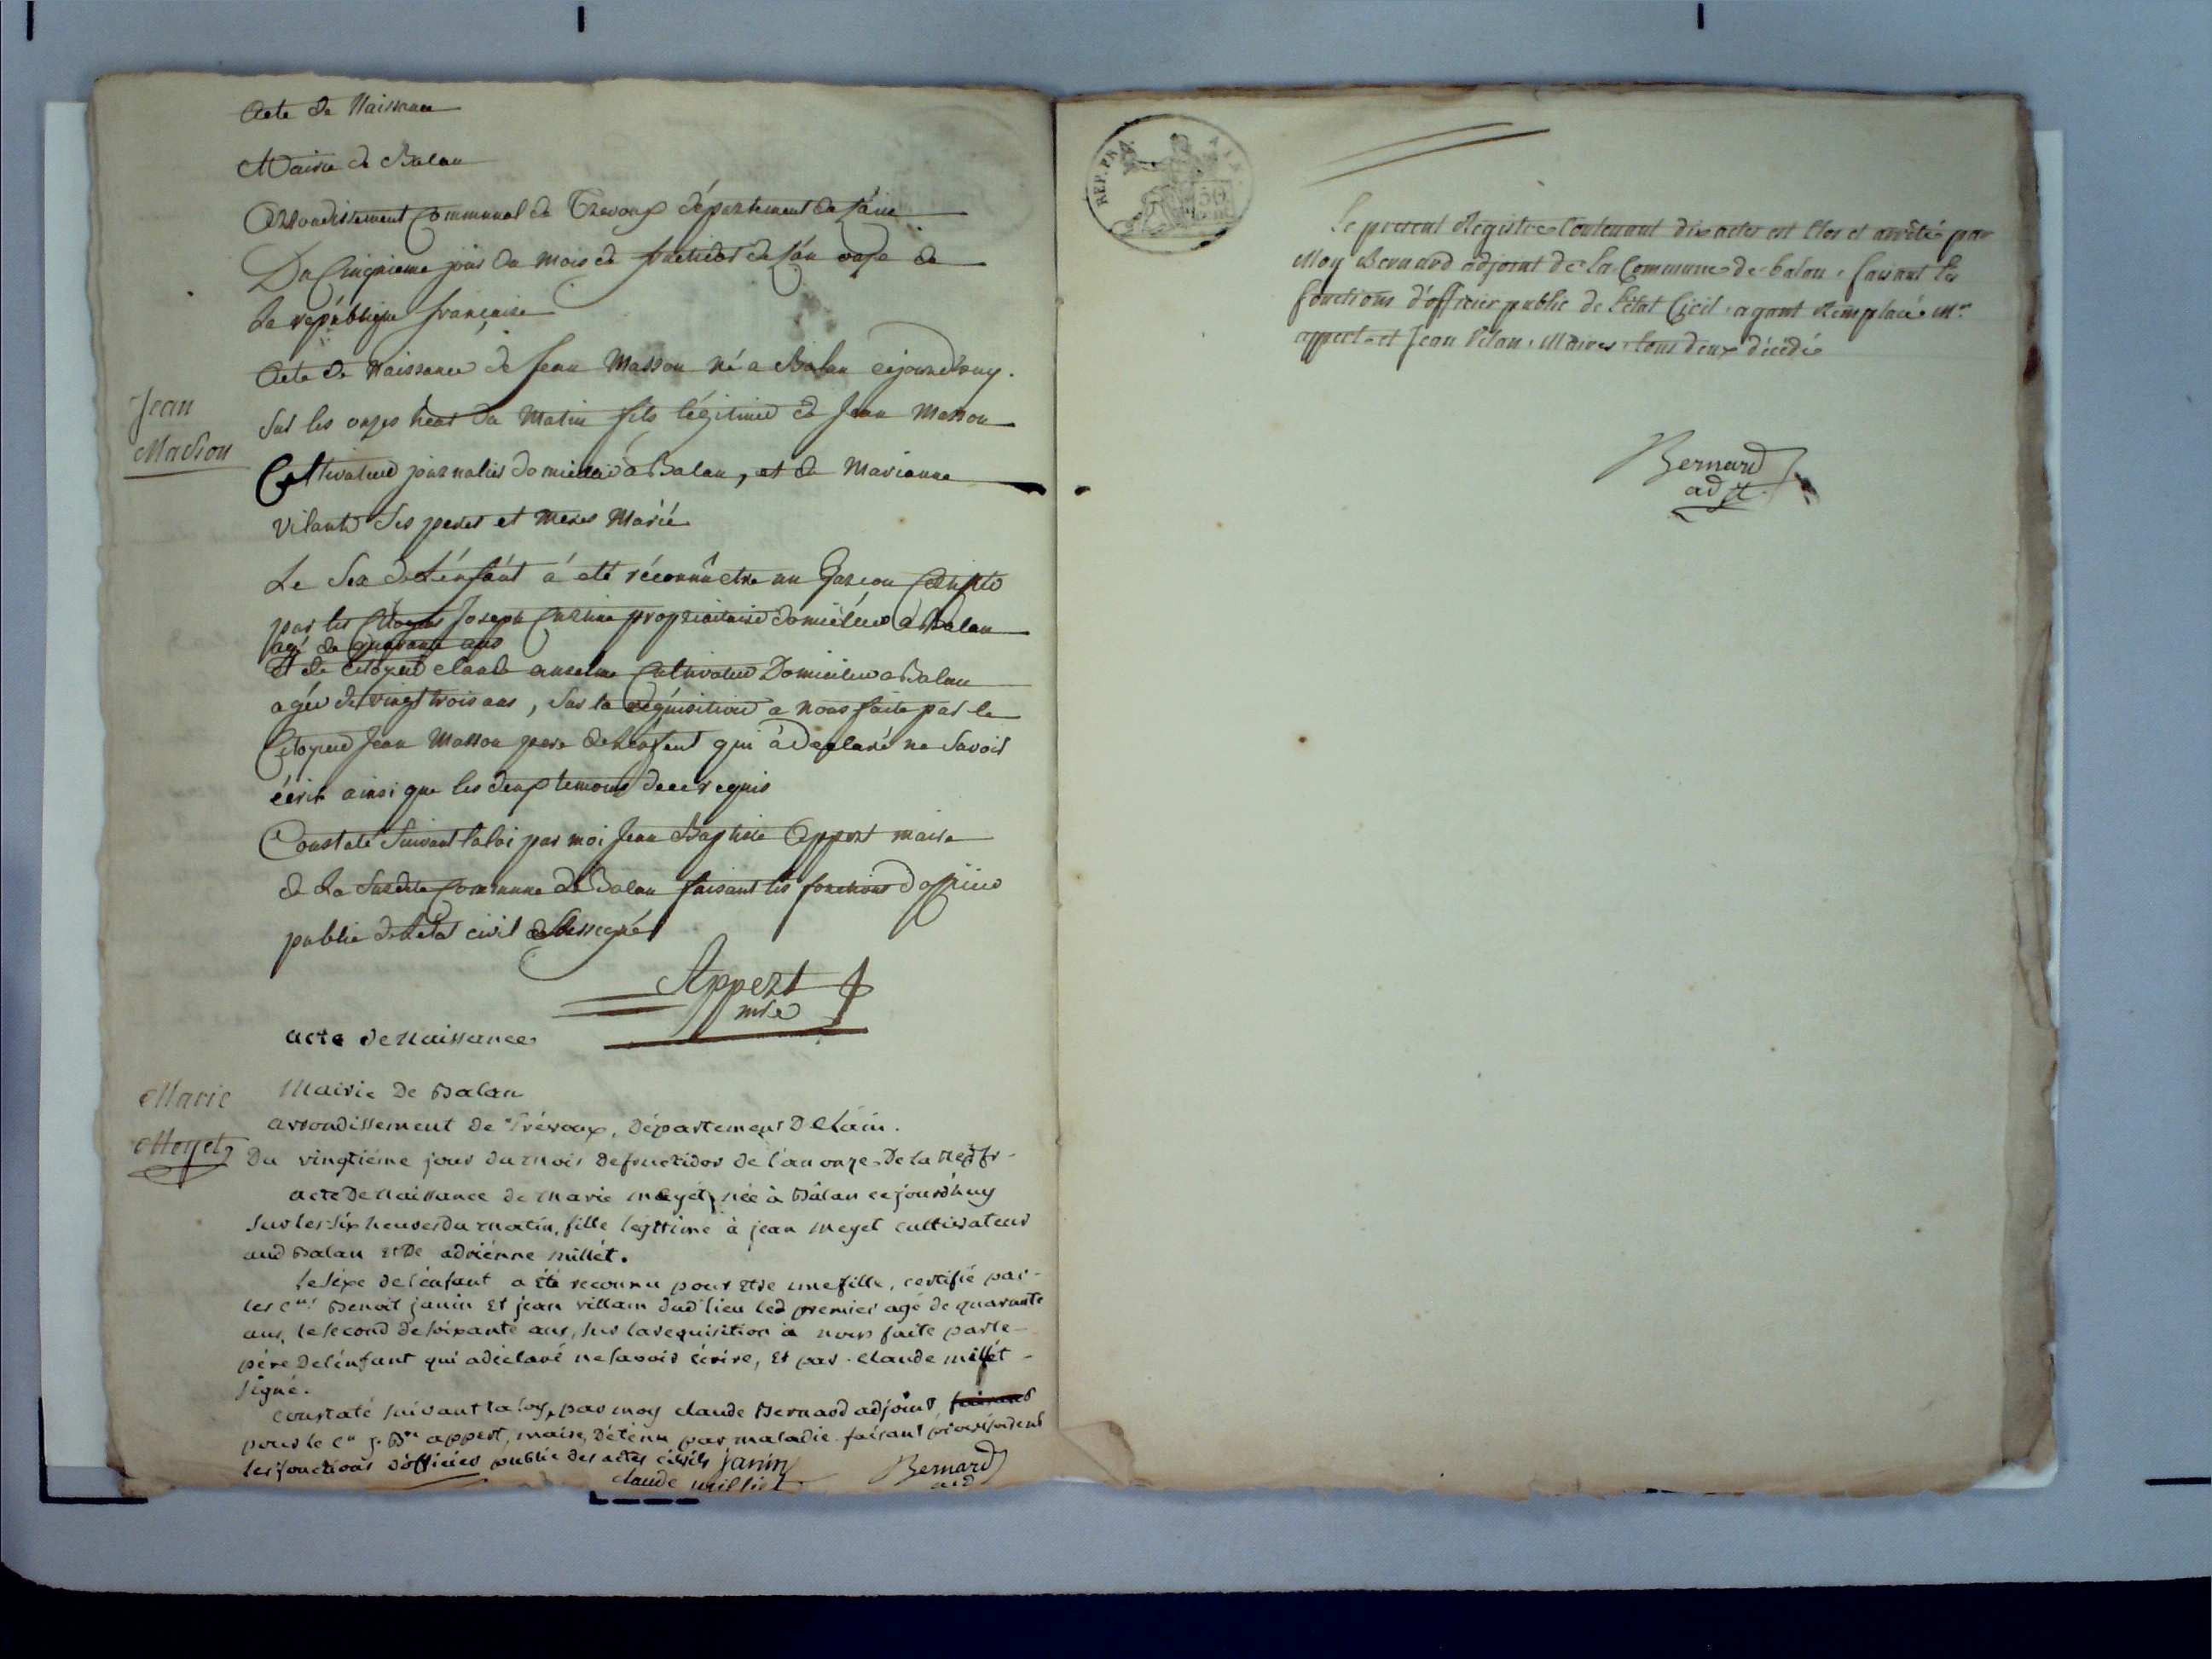 Acte de Naissance
Mairie de Balan
Arrondissement Communal de Trevoux département de l'ain
Du Cinquieme jour du mois de fructidor de l'an onze de
la république française
Jean
Masson
Acte de Naissance de Jean Masson né a Balan cejourdhuy
sur les onzes heur du Matin fils légitime de Jean Masson
Cultivateur journalier domicilié à Balan, et de Marianne
vilante ses peres et meres Marié
Le Sex de L'énfant à eté réconnû etre un Garcon
par les Citoyens Joseph propriaitaire domicilié à Balan
agé de quarante ans
et de Citoyen claude anselme Cultivateur Domicilié a Balan
agée de vingt trois ans, sur la réquisition a nous faite par le
Citoyen Jean Masson pere de lenfent qui à Declaré ne savoir
écrir ainsi que les deux temoins de ce requis
Constaté Suivant la loi par moi Jean Baptiste Appert maire
de La susdite Commune de Balan faisant les fonctions d'officier
public de letat civil
Appert
mre
acte de Naissance
Marie
Meyet
Mairie de Balan
arrondissement de Trévoux, département De Lain.
Du vingtiéme jour du mois de fructidor de l'an onze De la Rep fr
acte De Naissance de Marie meyét, née à Bâlan cejourd'huy
sur les six heures du matin, fille legitime à jean meyet cultivateur
aud Balan et De adriénne millét.
le séxe de l'énfant a été reconnu pour etre une fille, certifié par
les cens Benoit janin et jean villam dud lieu led premier agé de quarante
ans, le second de soixante ans, sur la requisition à nous faite par le
pére De l'énfant qui a déclaré ne savoir écrire, et par claude millét
signé.
constaté suivant la loy, par moy claude Bernard adjoint, faisant
pour le cn j. Bte appert, maire, détenu par maladie faisant provisoirement
les fonctions d'officier public des actes civils janin
claude milliet
Bernard
ad
REP. FRA
50
Le present Registre Contenant dix actes est Clos et arrêté par
Moy Bernard adjoint de la Commune de balan, faisant les
fonctions d'officier public de l'état Civil, ayant Remplacé Mrs
appert et Jean Vilan, Maires, tous deux décédés
Bernard
adjt